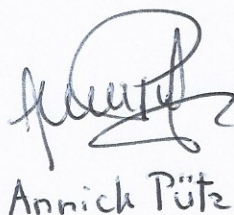 Annick Pütz